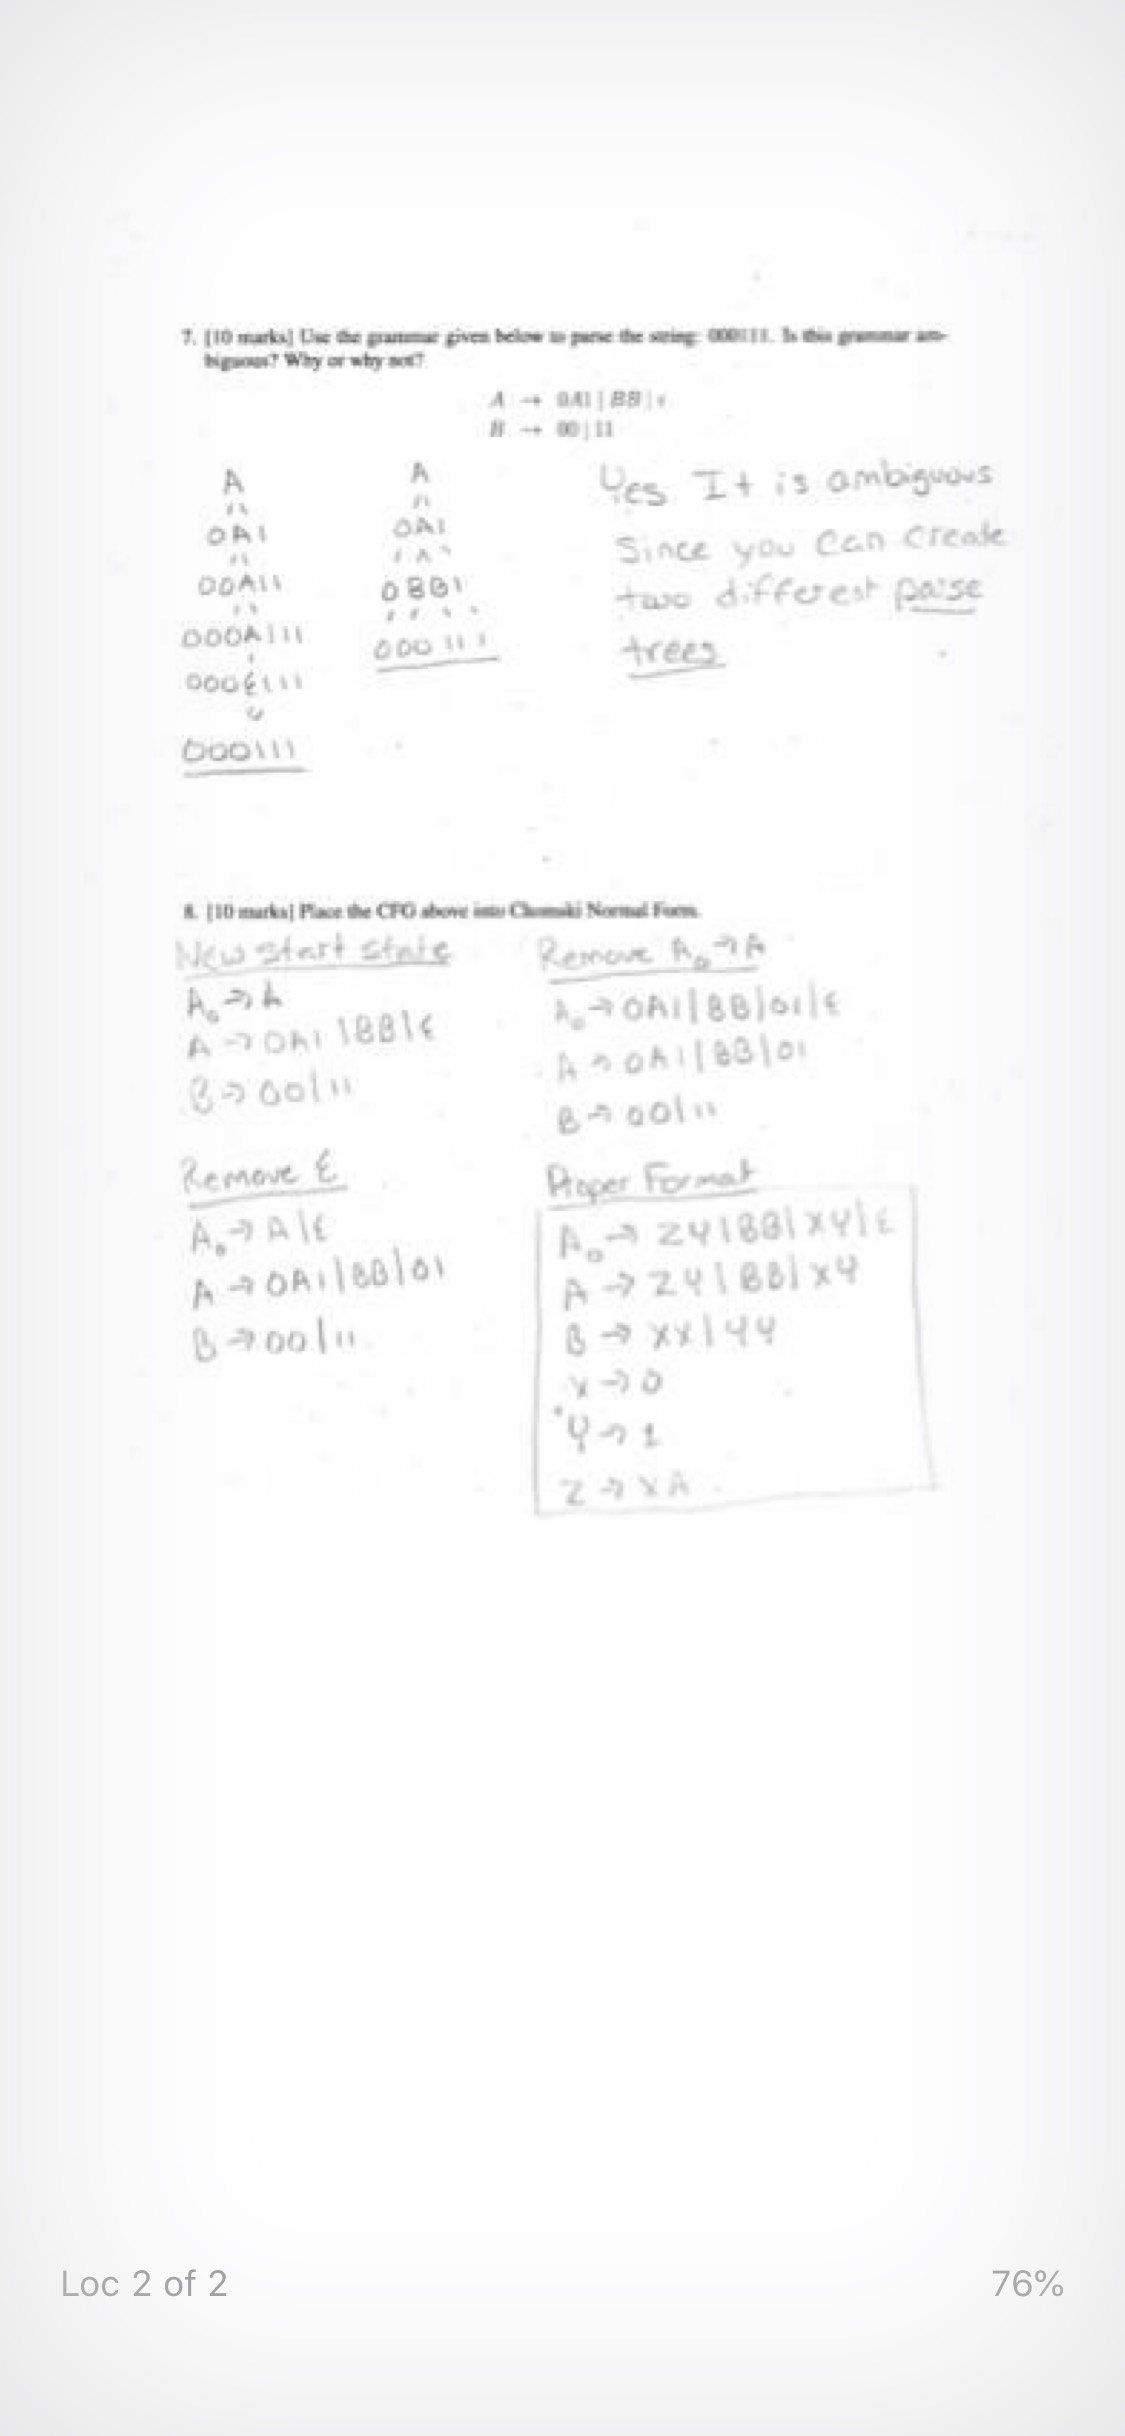 7. [10 marks] Use the grammar given below to parse the string: 000111. Is this grammar am-
biguous? Why or why not?
A → 0A1 | BB | ε
B → 00 | 11
A
0A1
00A11
000A111
000ε111
000111
A
0A1
0BB1
000 111
Yes It is ambiguous
Since you can create
two different parse
trees
8. [10 marks] Place the CFG above into Chomski Normal Form.
New start state
A₀ → A
A → 0A1 | BB | ε
B → 00 | 11
Remove ε
A₀ → A | ε
A → 0A1 | BB | 01
B → 00 | 11
Remove A₀ → A
A₀ → 0A1 | BB | 01 | ε
A → 0A1 | BB | 01
B → 00 | 11
Proper Format
A₀ → ZY | BB | XY | ε
A → ZY | BB | XY
B → XX | YY
X → 0
Y → 1
Z → XA
Loc 2 of 2
76%